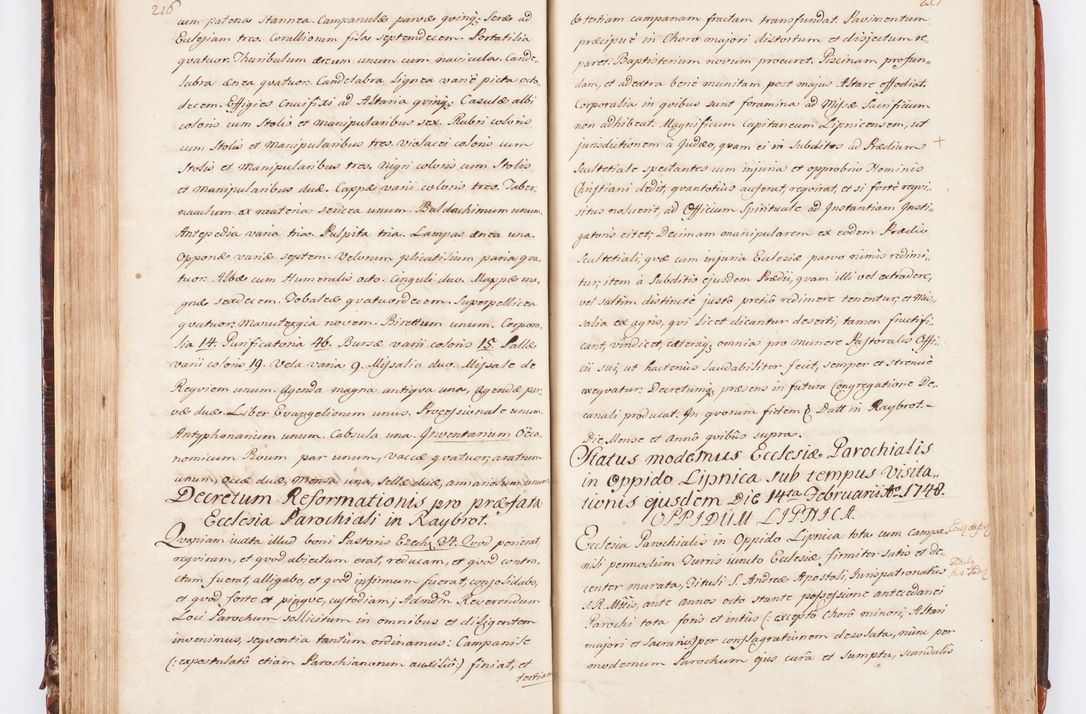 216
cum patena Stannea. Campanulæ parvæ qvinq; Seræ ad
Ecclesiam tres. Corallionum filas septendecem. Portatilia
qvatuor. Thuribulum æreum unum cum navicula. Cande,,
labra ænea qvatuor. Candelabra Lignea variè picta octo,
decem. Effigies Crucifixi ad Altaria qvinq; Casulæ albi
coloris cum Stolis et Manipularibus sex. Rubri coloris
cum Stolis et Manipularibus tres. Violacei coloris cum
Stolis et Manipularibus tres. Nigri coloris cum Stolis
et Manipularibus duæ. Cappæ varii coloris tres. Taber,
naculum ex materia sericea unum. Baldachimum unum.
Antepedia varia tria. Pulpita tria. Lampas ænea una.
Opponæ variæ septem. Velorum plicatilium paria qva,
tuor. Albæ cum Humeralis octo. Cinguli duo. Mappæ ma,
gnæ sexdecem. Tobaleæ qvatuordecem. Superpellicea
qvatuor. Manutergia novem. Birettum unum. Corpora,
lia 14. Purificatoria 46. Bursæ varii coloris 15. Pallæ
varii coloris 19. Vela varia 9. Missalia duo. Missale de
Reqviem unum. Agenda magna antiqva una, Agendæ par,
væ duæ. Liber Evangeliorum unus. Processionale unum.
Antyphonarium unum. Capsula una. Inventarium Oeco,
nomicum Boum par unum, vaccæ qvatuor, aratrum
unum, Ocæ duæ, Mensa una, Sellæ duæ, armarium unum.
Decretum Reformationis pro præfata
Ecclesia Parochiali in Raybrot.
Qvoniam iuxta illud boni Pastoris Ezech. 34. Qvod perierat,
reqviram, et qvod abiectum erat, reducam, et qvod contra,
ctum fuerat, alligabo, et qvod infirmum fuerat, consolidabo,
et qvod forte et pingve, custodiam; Admdm Reverendum
Loci Parochum sollicitum in omnibus et diligentem
invenimus, seqventia tantum ordinamus: Campanile
(: expostulatô etiam Parochianorum auxiliô:) finiat, et
tertiam
217
& tertiam campanam fractam transfundat. Pavimentum
præcipuè in Chorô majori distortum et disjectum re,
paret. Baptisterium novum procuret. Piscinam profun,,
dam, et ad extra benè munitam post majus Altare effodiat.
Corporalia in qvibus sunt foramina ad Missæ Sacrificium
non adhibeat. Magnificum Capitaneum Lipnicensem, ut
jurisdictionem à Judæo, qvam ei in Subditos ad Prædium
Scultetiale spectantes cum injuria et opprobrio Nominis
Christiani dedit, qvantotius auferat, reqvirat, et si fortè reqvi,
situs noluerit, ad Officium Spirituale ad Instantiam Insti,,
gatoris citet; Decimam manipularem ex eodem Prædio
Scultetiali, qvæ cum injuria Ecclesiæ parvo nimis redimi,
tur, item à Subditis ejusdem Prædii, qvam illi vel extradere,
vel saltim distinctè justô pretiô redimere tenentur, et Mis,
salia ex agris, qvi licet dicantur deserti, tamen fructifi,
cant, vindicet, cæteraq; omnia pro munere Pastoralis Offi,
cii sui, ut hactenus laudabiliter fecit, semper et strenuè
exeqvatur. Decretumq; præsens in futura Congregatione De,
canali producat. In qvorum fidem &. Datt in Raybrot.
Die Mense et Annô qvibus supra.
Status modernus Ecclesiæ Parochialis
in Oppido Lipnica sub tempus Visita,
tionis ejusdem Die 14ta Februarii Ao 1748.
OPPIDUM LIPNICA.
Ecclesia Parochialis in Oppido Lipnica tota cum Campa,
nili permodum Turris unito Ecclesiæ firmiter satis et de,
center murata, Tituli S. Andreæ Apostoli, Jurispatronatûs
S.R. Mttis, ante annos octo stante possessione antecedanei
Parochi tota foris et intus (: exceptô Chorô minori, Altari
majori et Sacrario:) per conflagrationem desolata, nunc per
modernum Parochum ejus curâ et sumptu, scandulis